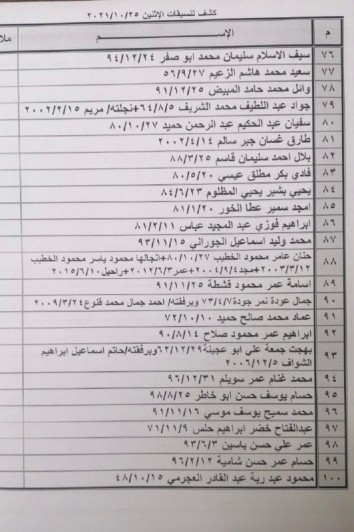 كشف تنسيقات الإثنين ٢٠٢١/١٠/٢٥
م الإســـــم ملا
٧٦ سيف الاسلام سليمان محمد ابو صفر ٩٤/١٢/٢٤
٧٧ سعيد محمد هاشم الزعيم ٥٦/٩/٢٧
٧٨ وائل محمد حامد المبيض ٩١/١٢/٢٥
٧٩ جواد عبد اللطيف محمد الشريف ٦٤/٨/٥+نجلته/ مريم ٢٠٠٢/٢/١٥
٨٠ سفيان عبد الحكيم عبد الرحمن حميد ٨٠/١٠/٢٧
٨١ طارق غسان جبر سالم ٢٠٠٢/٤/١٤
٨٢ بلال احمد سليمان قاسم ٨٨/٣/٢٥
٨٣ فادي بكر مطلق عيسي ٨٠/٥/٢٠
٨٤ يحيي بشير يحيي المظلوم ٨٤/٦/٢٣
٨٥ امجد سمير عطا الخور ٨١/١/٢٠
٨٦ ابراهيم فوزي عبد المجيد عباس ٨١/٢/١١
٨٧ محمد وليد اسماعيل الجوراني ٩٣/١١/١٥
٨٨ حنان عامر محمود الخطيب ٨٠/١٠/٢٧+انجالها محمود ياسر محمود الخطيب
٢٠٠٣/٣/١٢+امجد٢٠٠٤/٩/٤+عمر٢٠١٢/٦/٣+راحيل٢٠١٥/٦/١٠
٨٩ اسامة عمر محمود قشطة ٩١/١١/٢٥
٩٠ جمال عودة نمر جودة٧٣/٤/٧ وبرفقته/ احمد جمال محمد قنوع٢٠٠٩/٣/٢٤
٩١ عماد محمد صالح حميد ٧٢/١٠/١٠
٩٢ ابراهيم عمر محمود صلاح ٩٠/٨/١٤
٩٣ بهجت جمعة علي ابو عجينة٦٢/١٢/٢٩وبرفقته/حاتم اسماعيل ابراهيم
الشواف ٢٠٠٦/١٢/٥
٩٤ محمد غنام عمر سويلم ٩٦/١٢/٣١
٩٥ حسام يوسف حسن ابو خاطر ٩٨/٨/٢٥
٩٦ محمد سميح يوسف موسي ٩١/١١/١٦
٩٧ عبدالفتاح خضر ابراهيم حلس ٧١/١١/٩
٩٨ عمر علي حسن ياسين ٩٣/٦/٣
٩٩ حسام عمر حسن شامية ٩٦/٢/١٢
١٠٠ محمود عبد ربة عبد القادر العجرمي ٤٨/١٠/١٥